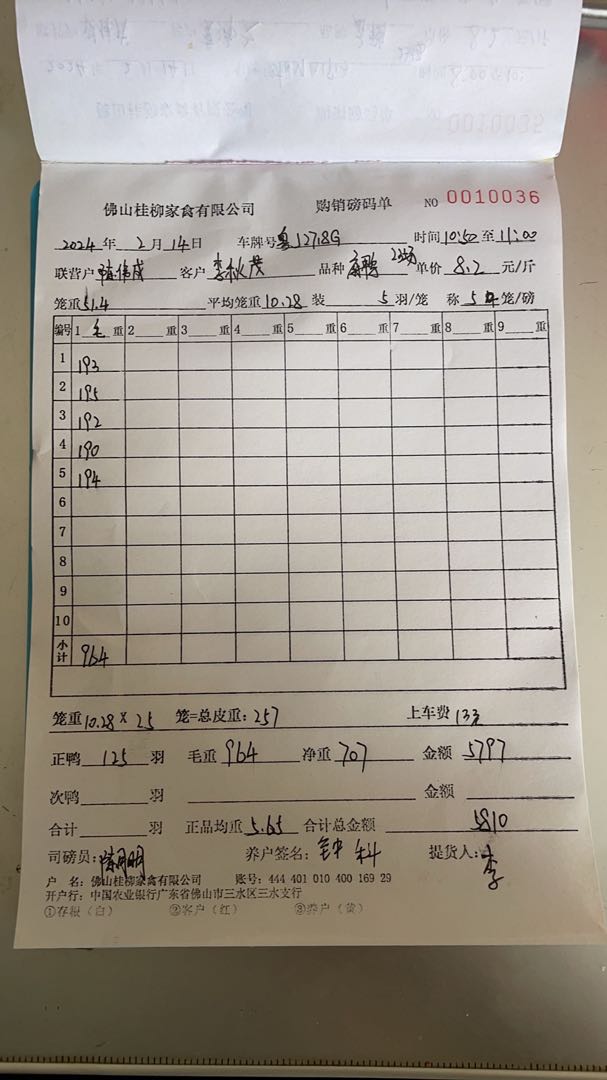 0010035
佛山桂柳家禽有限公司 购销磅码单 NO 0010036
2024年 2月14日 车牌号粤1278G 时间10:50至11:00
联营户 客户 李秋茂 品种 单价 8.2 元/斤
笼重51.4 平均笼重10.28 装 5 羽/笼 称 5 笼/磅
编号 1 毛 重 2 重 3 重 4 重 5 重 6 重 7 重 8 重 9 重
1 193
2 195
3 192
4 190
5 194
6
7
8
9
10
小计 964
笼重10.28×25 笼=总皮重:257 上车费 13元
正鸭 125 羽 毛重 964 净重 707 金额 5797
次鸭 羽 金额
合计 羽 正品均重 5.65 合计总金额 5810
司磅员: 养户签名: 提货人:李
户 名:佛山桂柳家禽有限公司 账号:444 401 010 400 169 29
开户行:中国农业银行广东省佛山市三水区三水支行
①存根(白) ②客户(红) ③养户(黄)